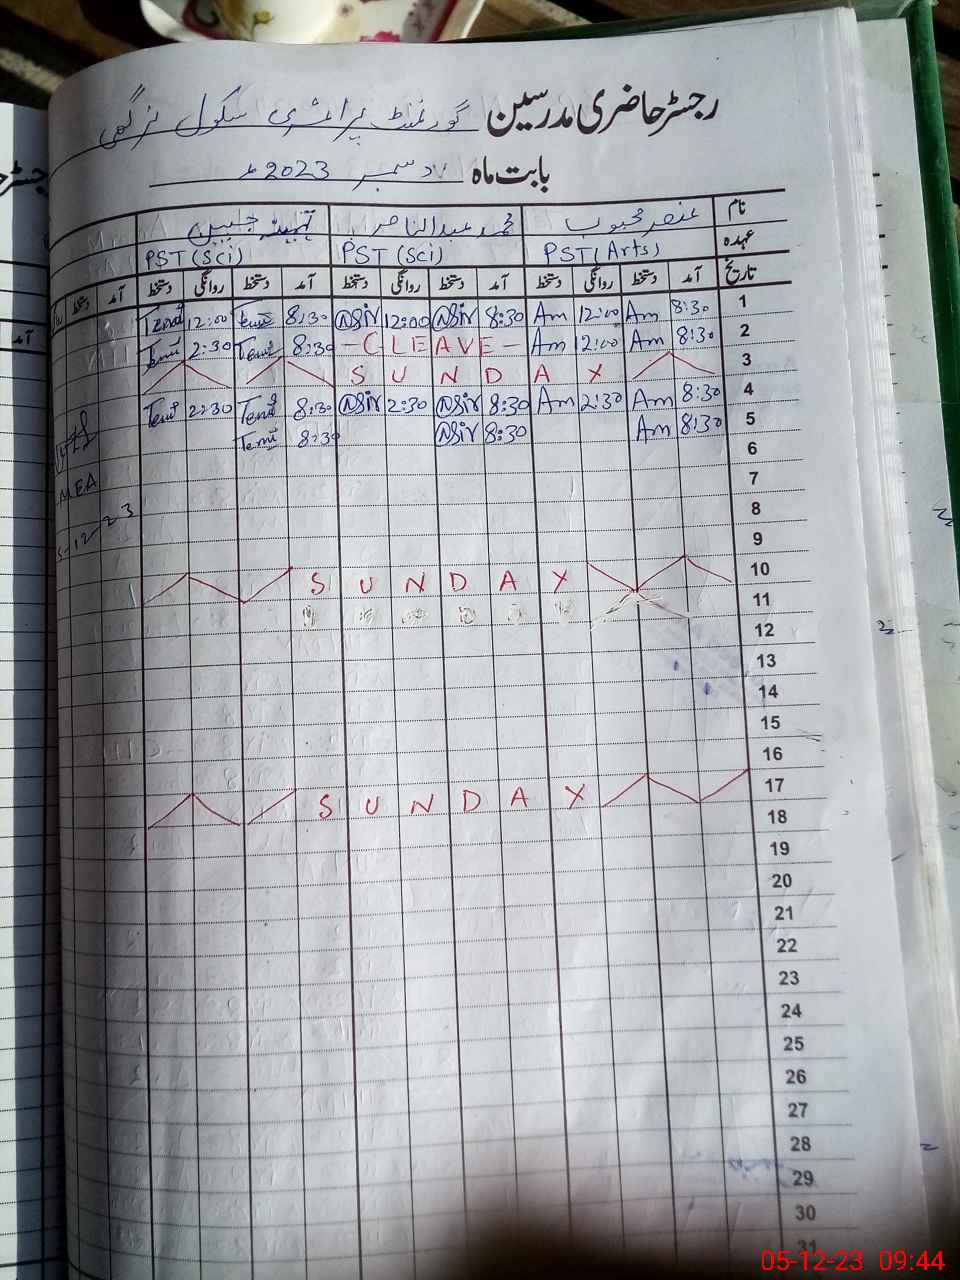 رجسٹر حاضری مدرسین گورنمنٹ پرائمری سکول نرگھی
بابت ماہ دسمبر 2023ء
نام عنصر محبوب محمد عبدالناصر تہمینہ جبیں
عہدہ PST (Arts) PST (Sci) PST (Sci)
تاریخ آمد دستخط روانگی دستخط آمد دستخط روانگی دستخط آمد دستخط روانگی دستخط آمد دستخط
1 8:30 Am 12:00 Am 8:30 Nsir 12:00 Nsir 8:30 12:00
2 8:30 Am 12:00 Am - C LEAVE - 8:30 2:30
3 S U N D A Y
4 8:30 Am 2:30 Am 8:30 Nsir 2:30 Nsir 8:30 2:30
5 8:30 Am 8:30 Nsir 8:30
6
7
8
9
10 S U N D A Y
11
12
13
14
15
16
17 S U N D A Y
18
19
20
21
22
23
24
25
26
27
28
29
30
31
MEA
5-12-23
آمد
05-12-23 09:44